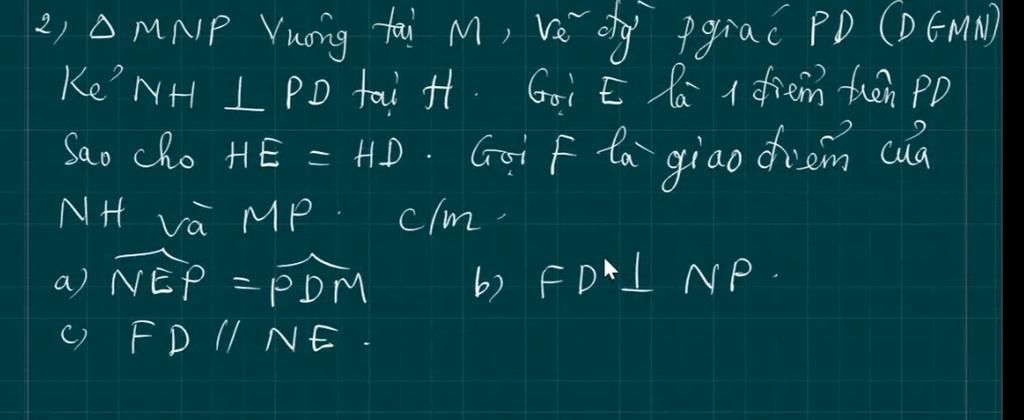 2) Δ MNP Vuông tại M, vẽ đg̀ pgiác PD (D∈MN)
Kẻ NH ⊥ PD tại H. Gọi E là 1 điểm trên PD
Sao cho HE = HD. Gọi F là giao điểm của
NH và MP. c/m.
a) NEP = PDM b) FD ⊥ NP.
c) FD // NE.